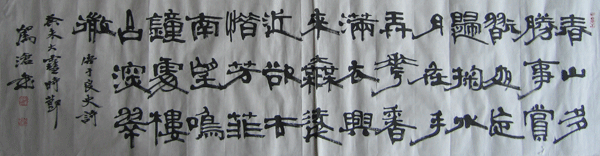 春山多
勝事賞
翫夜忘
歸掬水
月在手
弄花香
滿衣興
來無遠
近欲去
惜芳菲
南望鳴
鐘處樓
台深翠
微
唐于良史詩
癸未大雪時節